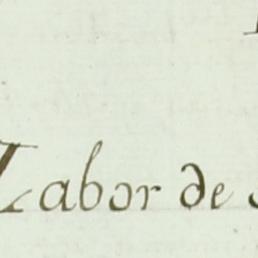 Labor de